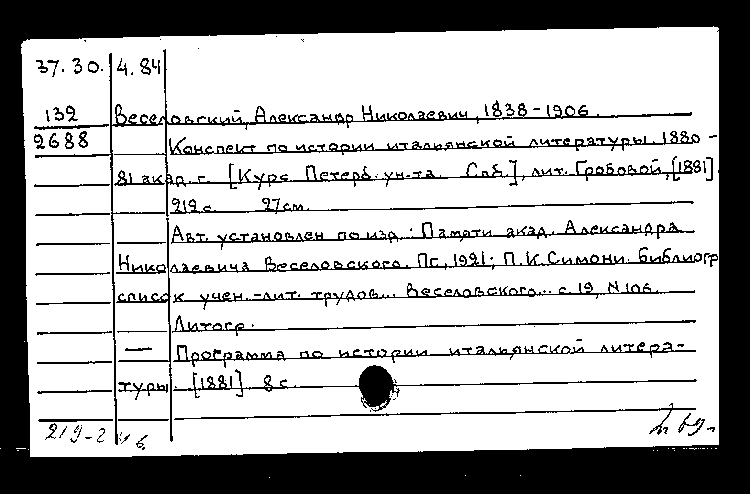 37.30. 4.84
132 Веселовский, Александр Николаевич, 1838-1906.
2688 Конспект по истории итальянской литературы. 1880-
81 акад. г. [Курс Петерб. ун-та. Спб.], лит. Гробовой, [1881].
212 с. 27 см.
Авт. установлен по изд.: Памяти акад. Александра
Николаевича Веселовского. Пг., 1921; П.К. Симони. Библиогр
список учен.-лит. трудов... Веселовского... с. 19, N 106.
Литогр.
— Программа по истории итальянской литера-
туры. [1881] 8 с.
219-2